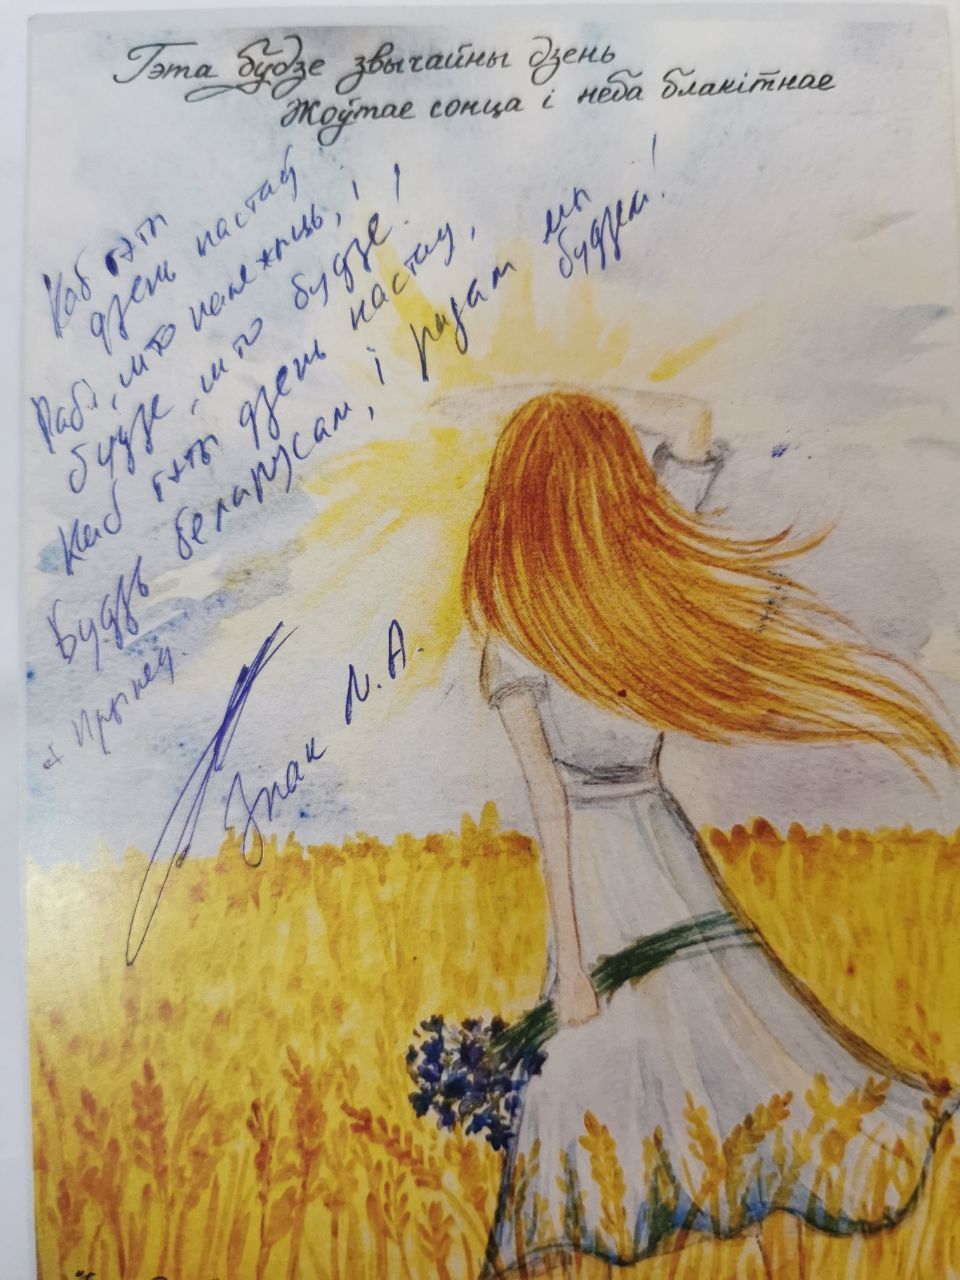 Гэта будзе звычайны дзень
Жоўтае сонца і неба блакітнае
Каб гэты
дзень настаў
Рабі, што належыць, і
будзе, што будзе!
Каб гэты дзень настаў,
Будзь беларусам, і разам мы
будзем!
Прыпед.
Знак М.А.